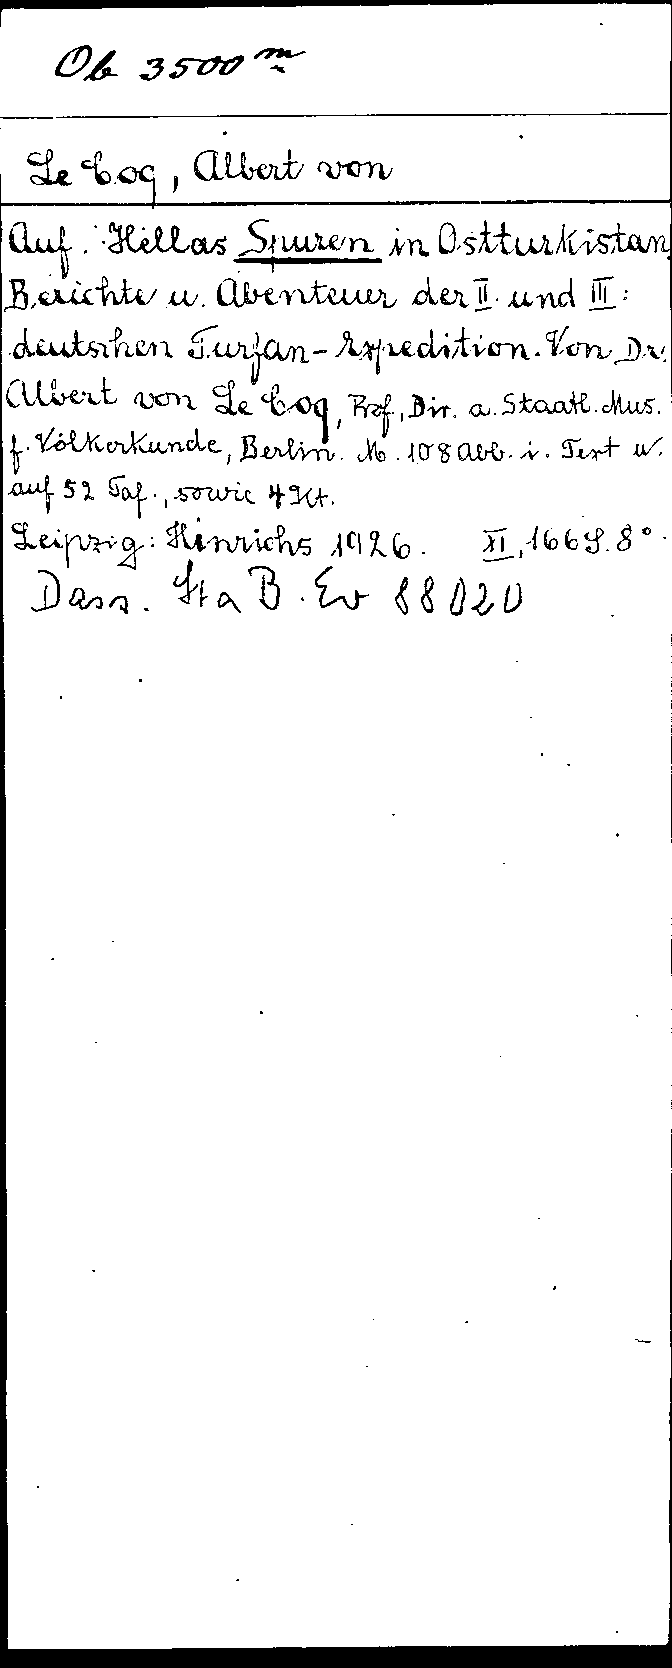 Ob 3500 m
Le Coq, Albert von
Auf Hellas Spuren in Ostturkistan.
Berichte u. Abenteuer der II. und III.
deutschen Turfan-Expedition. Von Dr.
Albert von Le Coq, Prof., Dir. a. Staatl. Mus.
f. Völkerkunde, Berlin. M. 108 Abb. i. Text u.
auf 52 Taf., sowie 4 Kt.
Leipzig: Hinrichs 1926. XI, 166 S. 8°.
Dass. StaB. Ev 88020